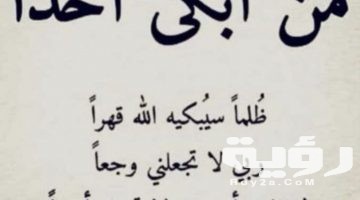 من أبكى أحداً
ظُلماً سيُبكيه الله قهراً
ربي لا تجعلني وجعاً
رؤية
Roy2a.CoM